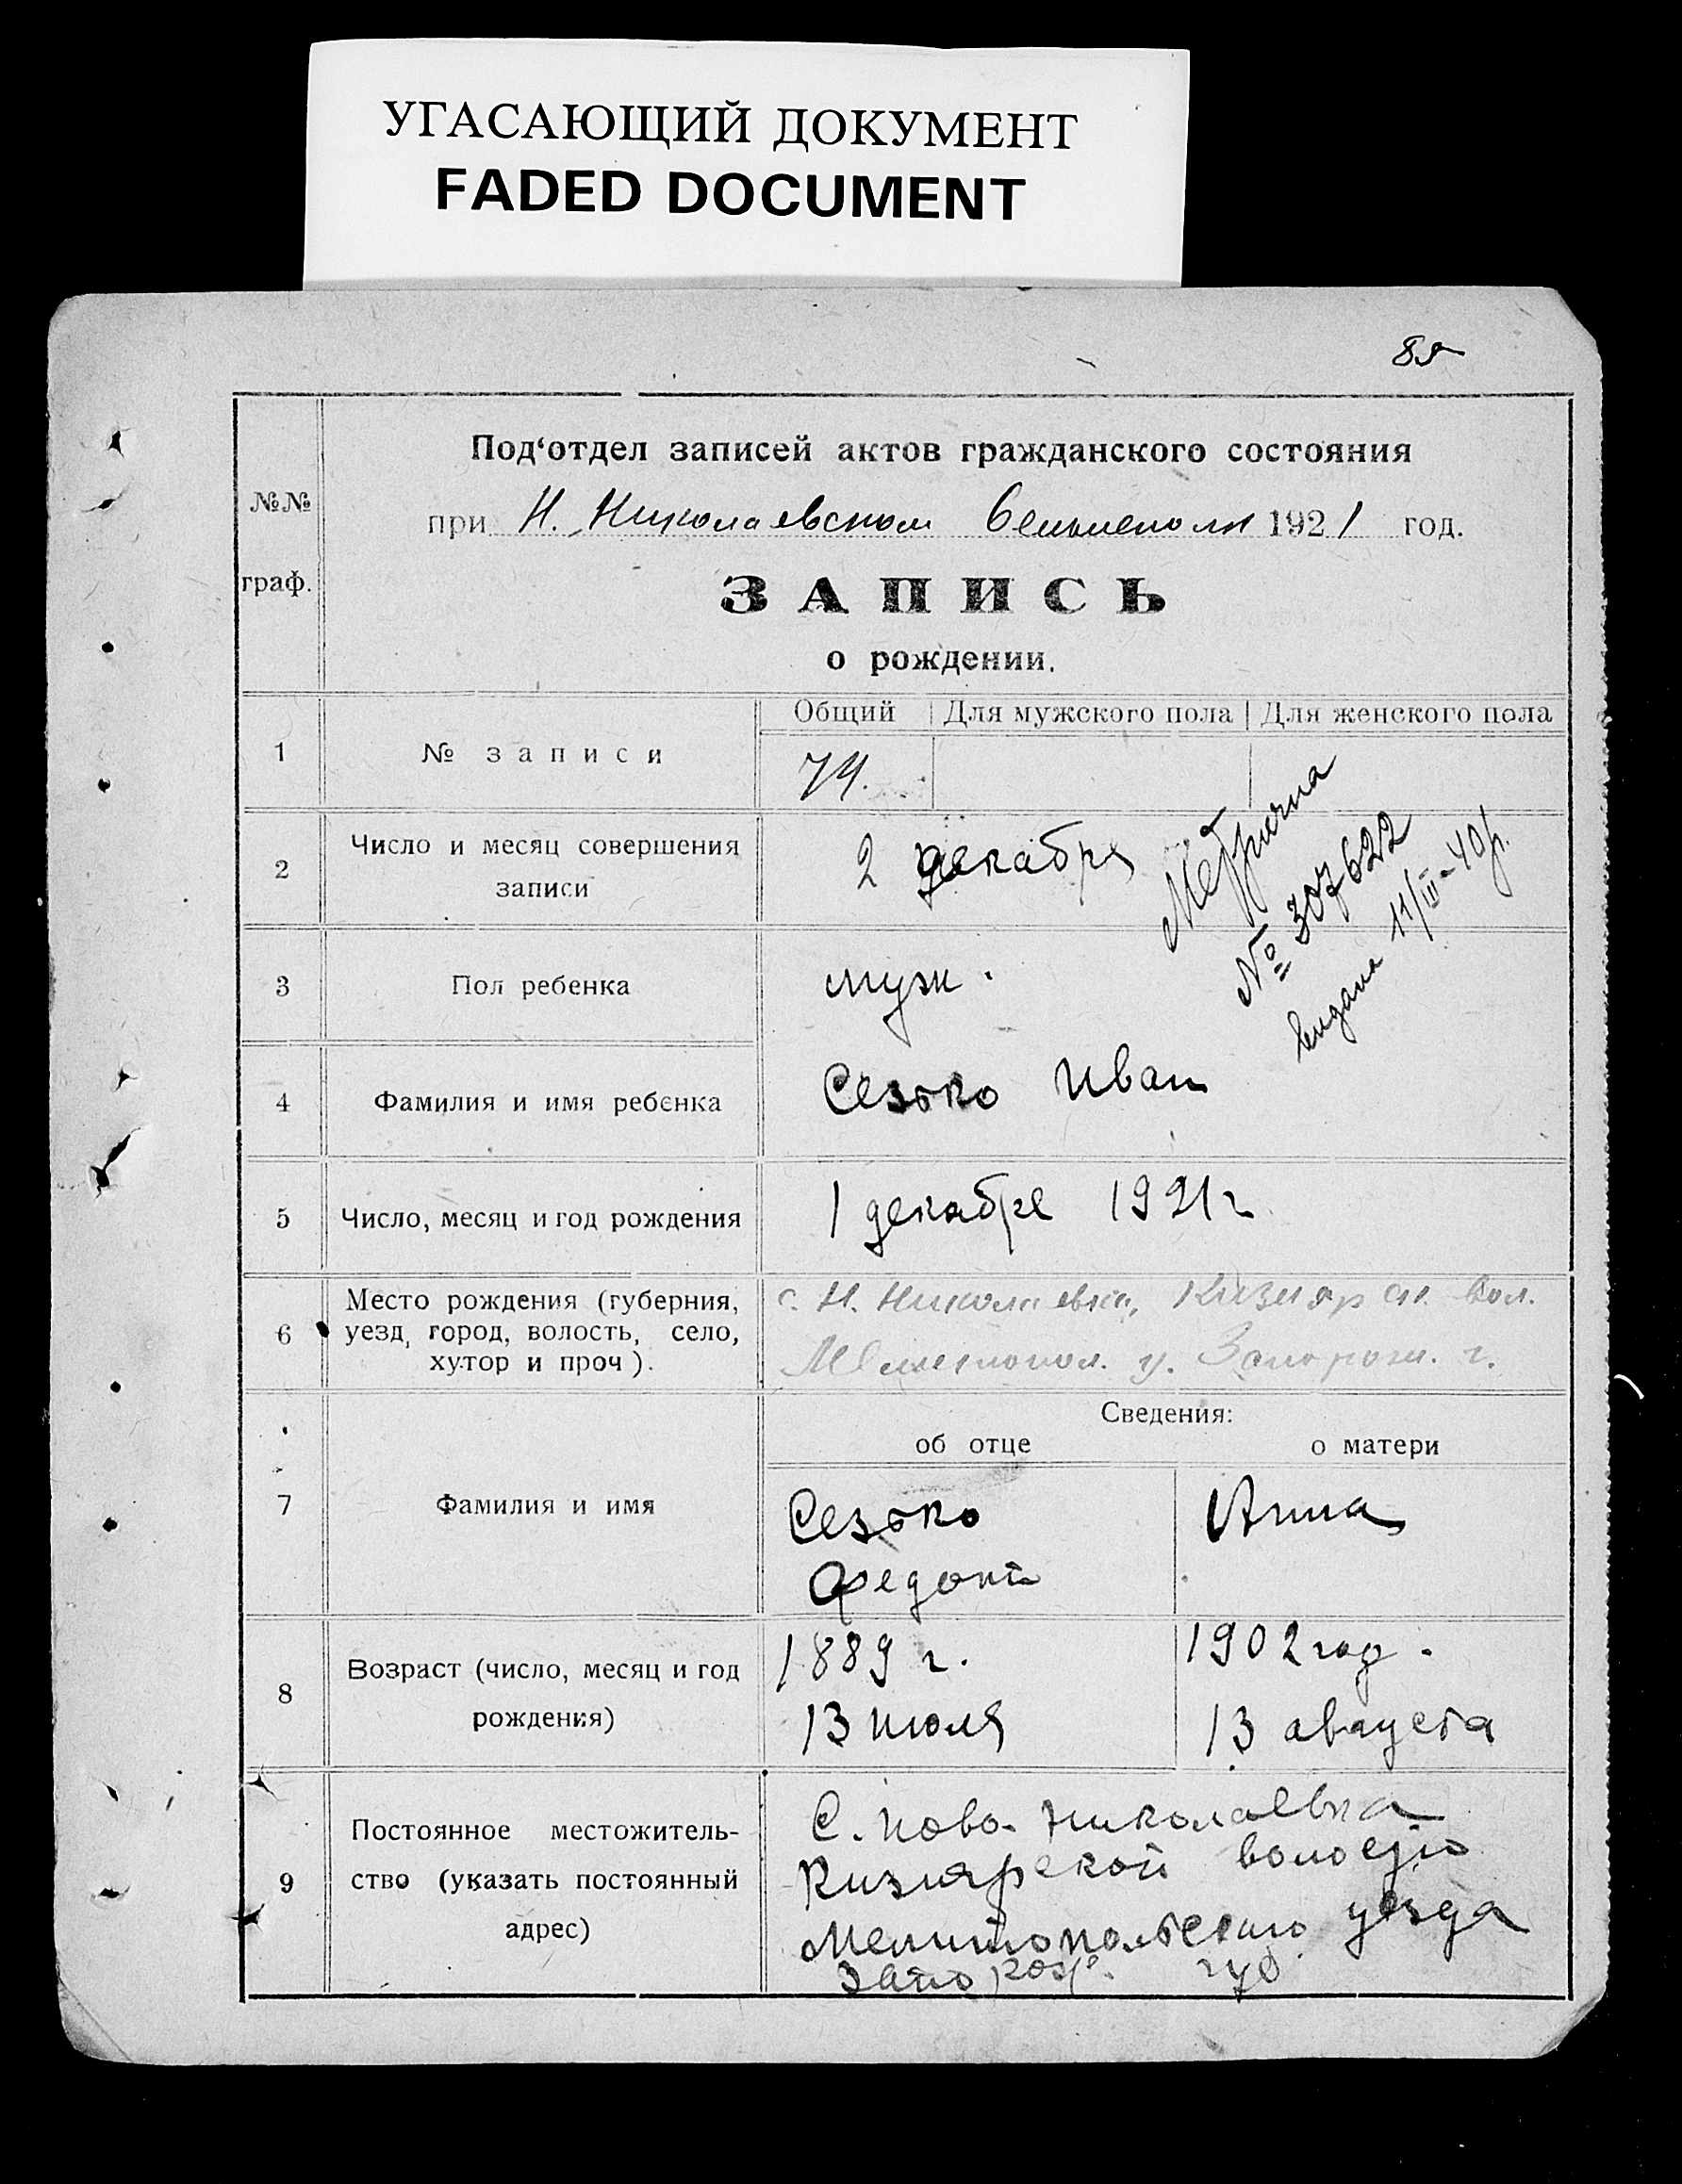 УГАСАЮЩИЙ ДОКУМЕНТ
FADED DOCUMENT
№№
граф.
Под‘отдел записей актов гражданского состояния
при Н. Николаевском 1921 год.
ЗАПИСЬ
о рождении.
Общий Для мужского пола Для женского пола
1 № записи 74.
2 Число и месяц совершения
записи
2 декабря
Метрична
№ 307622
видана 11/III-40р.
3 Пол ребенка муж.
4 Фамилия и имя ребенка Сезько Иван
5 Число, месяц и год рождения 1 декабре 1921 г
6 Место рождения (губерния,
уезд, город, волость, село,
хутор и проч).
с. Н. Николаевка, Кизиярск. вол.
Мелитопол. у. Запорож. г.
Сведения:
об отце о матери
7 Фамилия и имя
Сезько
Федот
Анна
8 Возраст (число, месяц и год
рождения)
1889 г.
13 июля
1902 год.
13 августа
9 Постоянное местожитель-
ство (указать постоянный
адрес)
С. Ново-Николаевка
Кизиярской
Мелитопольского уезда
губ